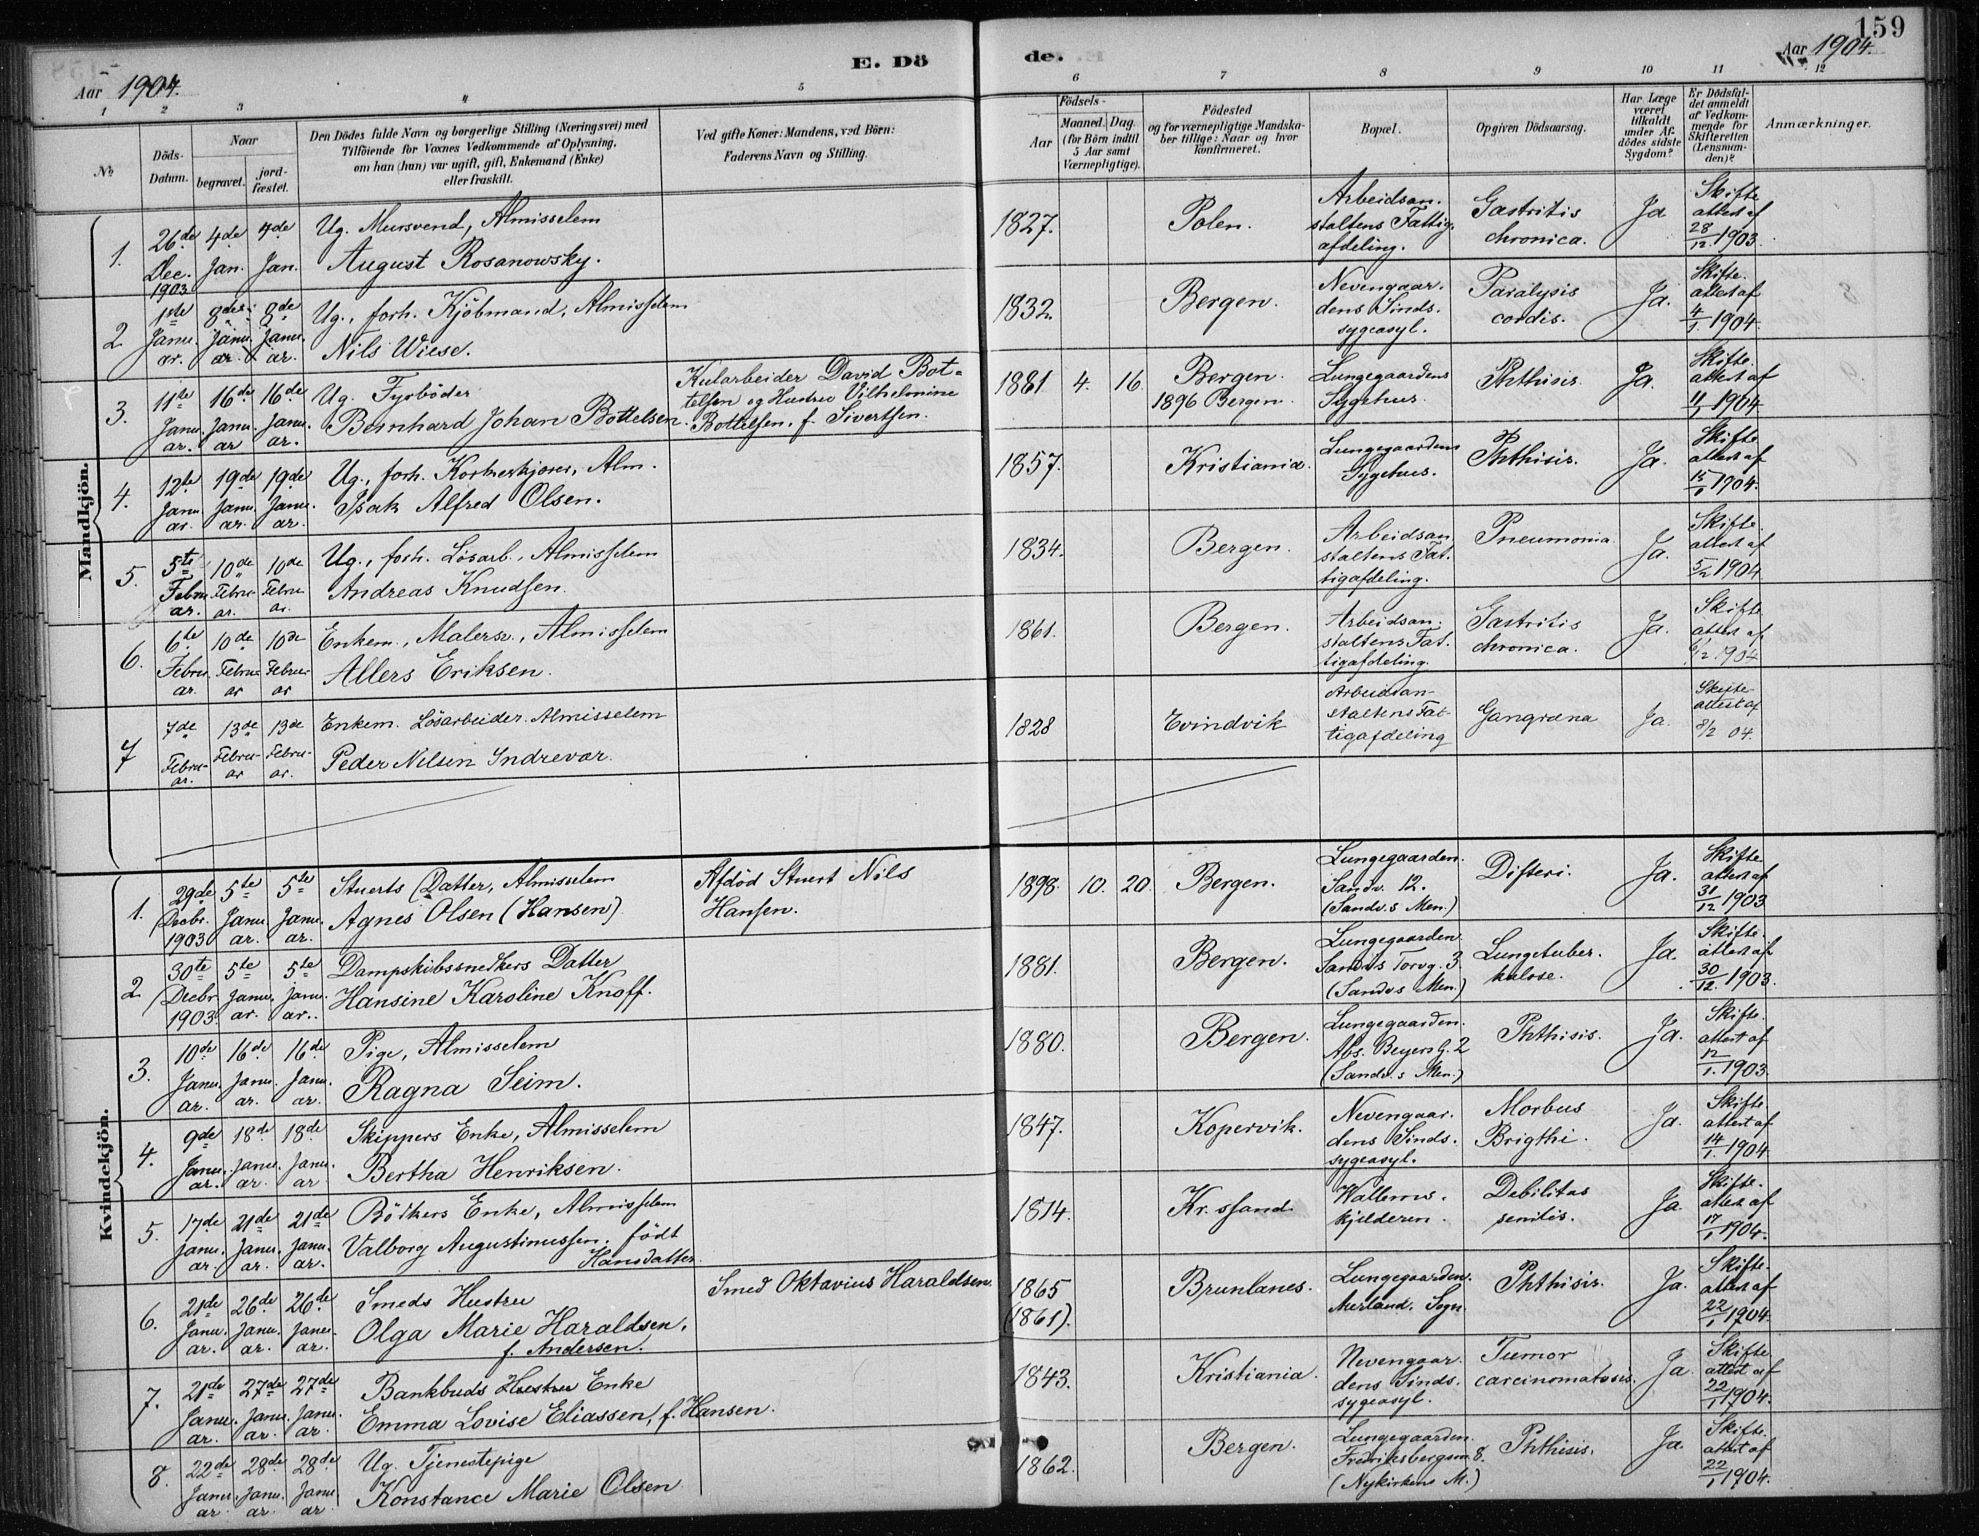 159
E. Dö
de.
Aar 1904.
Aar 1904.
1 2 3 4 5 6 7 8 9 10 11 12
№
Döds-
Datum.
Naar
begravet.
jord-
fæstet.
Den Dödes fulde Navn og borgerlige Stilling (Næringsvei) med
Tilföiende for Voxnes Vedkommende af Oplysning,
om han (hun) var ugift, gift, Enkemand (Enke)
eller fraskilt.
Ved gifte Koner: Mandens, ved Börn:
Faderens Navn og Stilling.
Födsels-
Aar
Maaned. Dag.
(for Börn indtil
5 Aar samt
Værnepligtige).
Födested
og for værnepligtige Mandska-
ber tillige: Naar og hvor
konfirmeret.
Bopæl.
Opgiven Dödsaarsag.
Har Læge
været
tilkaldt
under Af-
dödes sidste
Sygdom?
Er Dödsfal-
det anmeldt
af Vedkom-
mende for
Skifteretten
(Lensman-
den)?
Anmærkninger.
Mandkjön.
1. 26de Dec. 1903 4de Jan. 4de Jan.
Ug. Mursvend, Almisselem
August Rosanowsky.
1827. Polen.
Arbeidsan-
staltens Fattig-
afdeling.
Gastritis
chronica.
Ja
Skifte
attest af
28/12 1903.
2 1ste Janu-ar. 8de Janu-ar. 8de Janu-ar.
Ug., forh. Kjöbmand, Almisselem
Nils Wiese.
1832. Bergen.
Nevengaar-
dens Sinds-
sygeasyl.
Paralysis
cordis.
Ja.
Skifte-
attest af
4/1 1904.
3. 11te Janu-ar. 16de Janu-ar 16de Janu-ar.
Ug. Fyrböder
Bernhard Johan Bottelsen.
Kularbeider David Bot-
telsen og Hustru Vilhelmine
Bottelsen, f. Sivertsen.
1881 4. 16. Bergen.
1896 Bergen.
Lungegaardens
Sygehus.
Phthisis.
Ja.
Skifte-
attest af
11/1 1904.
4. 12te Janu-ar. 19de Janu-ar. 19de Janu-ar.
Ug., forh. , Alm.
Isak Alfred Olsen.
1857. Kristiania.
Lungegaardens
Sygehus.
Phthisis.
Ja.
Skifte
attest af
15/1 1904.
5. 5te Febru-ar. 10de Febru-ar. 10de Febru-ar.
Ug., forh. Lösarb., Almisselem
Andreas Knudsen.
1834. Bergen.
Arbeidsan-
staltens Fat-
tigafdeling.
Pneumonia.
Ja.
Skifte-
attest af
5/2 1904
6. 6te Febru-ar. 10de Febru-ar 10de Febru-ar
Enkem., Malersv., Almisselem
Allers Eriksen.
1861. Bergen.
Arbeidsan-
staltens Fat-
tigafdeling.
Gastritis
chronica.
Ja.
Skifte
attest af
6/2 1904
7 7de Febru-ar. 13de Febru-ar 13de Febru-ar.
Enkem. Lösarbeider. Almisselem
Peder Nilsen Indrevar.
1828 Evindvik
Arbeidsan-
staltens Fat-
tigafdeling
Gangræna
Ja.
Skifte-
attest af
8/2 04.
Kvindekjön.
1. 29de Decbr. 1903 5te Janu-ar. 5te Janu-ar.
Stuerts Datter, Almisselem
Agnes Olsen (Hansen).
Afdöd Stuert Nils
Hansen.
1898. 10. 20. Bergen.
Lungegaarden.
Sandv. 12.
(Sandv.s Men.)
Difteri.
Ja.
Skifte
attest af
31/12 1903
2 30te Decbr 1903. 5te Janu-ar. 5te Janu-ar.
Dampskibssnedkers Datter
Hansine Karoline Knoff.
1881. Bergen.
Lungegaarden.
Sandvs Torvg. 3
(Sandvs Men.)
Lungetuber-
kulose.
Ja.
Skifte-
attest af
30/12. 1903.
3. 10de Janu-ar. 16de Janu-ar. 16de Janu-ar.
Pige, Almisselem
Ragna Seim.
1880. Bergen.
Lungegaarden.
Abs. Beyers G. 2
(Sandv.s Men.)
Phthisis.
Ja.
Skifte-
attest af
12/1. 1903.
4. 9de Janu-ar. 18de Janu-ar. 18de Janu-ar
Skippers Enke, Almisselem
Bertha Henriksen.
1847. Kopervik.
Nevengaar-
dens Sinds-
sygeasyl.
Morbus
Brigthi.
Ja.
Skifte-
attest af
14/1. 1904.
5. 17de Janu-ar. 21de Janu-ar. 21de Janu-ar.
Bödkers Enke, Almisselem
Valborg Augustinussen, födt
Hansdatter.
1814. Kr. ssand.
Wallems-
kjelderen.
Debilitas
senilis.
Ja.
Skifte-
attest af
17/1 1904.
6. 21de Janu-ar. 26de Janu-ar. 26de Janu-ar.
Smeds Hustru
Olga Marie Haraldsen,
f. Andersen.
Smed Oktavius Haraldsen.
1865
(1861). Brunlanes.
Lungegaarden.
Aurland, Sogn.
Phthisis.
Ja.
Skifte-
attest af
22/1 1904.
7. 21de Janu-ar. 27de Janu-ar. 27de Janu-ar.
Bankbuds Hustru Enke
Emma Lovise Eliassen, f. Hansen.
1843. Kristiania.
Nevengaar-
dens Sinds-
sygeasyl.
Tumor
carcinomatosis.
Ja.
Skifte
attest af
22/1 1904.
8. 22de Janu-ar. 28de Janu-ar. 28de Janu-ar
Ug. Tjenestepige
Konstance Marie Olsen
1862. Bergen.
Lungegaarden.
Fredriksbergsm. 8.
(Nykirkens M.)
Phthisis.
Ja.
Skifte-
attest af
22/1 1904.